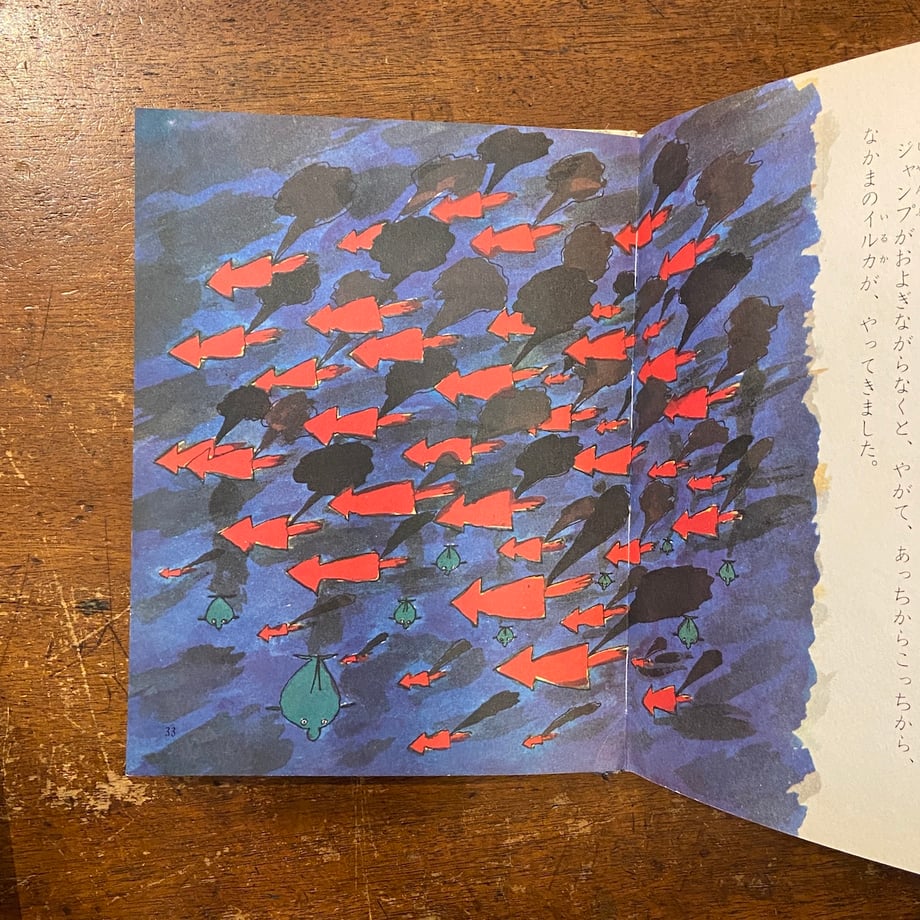 ジャンプがおよぎながらなくと、やがて、あっちからこっちから、
なかまのイルカが、やってきました。
いるか
33